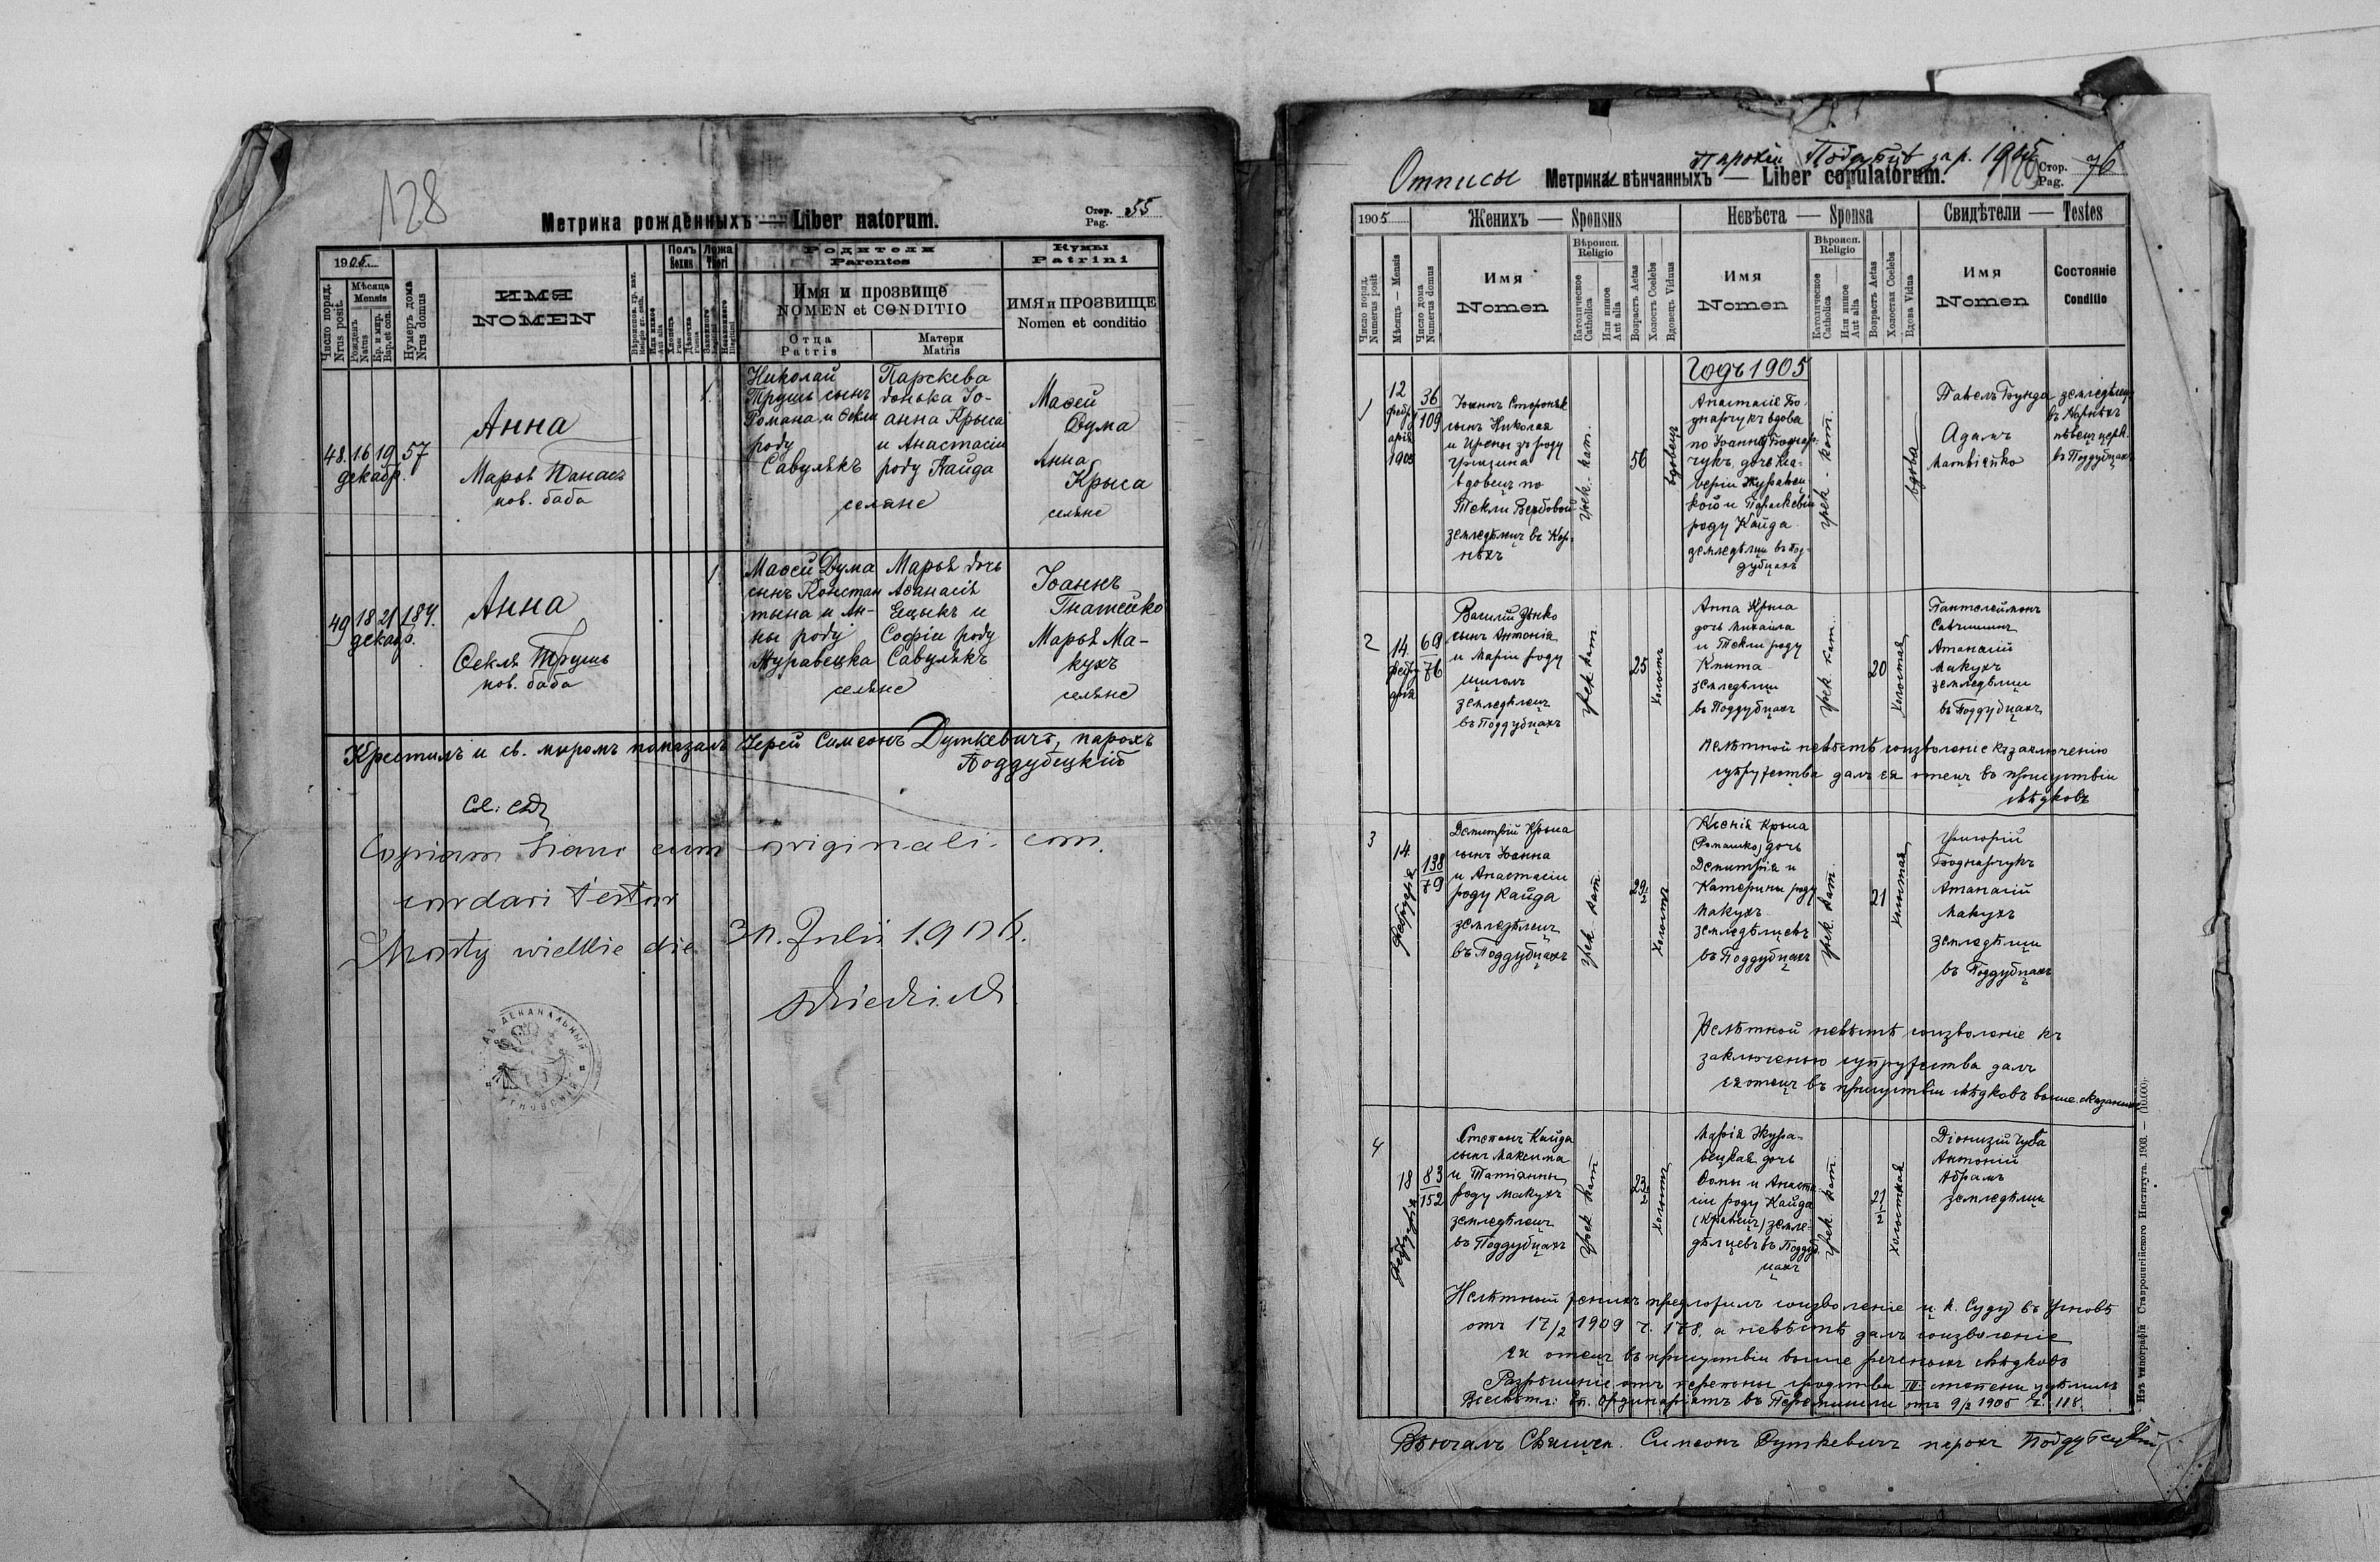 128
Метрика рожденныхъ — Liber natorum.
Стор.
Pag.
55
1905
Число поряд.
Nrus posit.
Мѣсяца
Mensis
Рожденъ
Natus
Кр. и мир.
Bap. et con.
Нумеръ дома
Nrus domus
ИМЯ
NOMEN
Полъ
Sexus
Ложа
Thori
Родители
Parentes
Имя и прозвище
NOMEN et CONDITIO
Отца
Patris
Матери
Matris
Кумы
Patrini
ИМЯ и ПРОЗВИЩЕ
Nomen et conditio
48.
16 19
декабр.
57
Анна
Марья Панась
пов. баба
Николай
Трушь сынъ
Романа и Фекли
роду
Савулякъ
Парскева
донька Іо-
анна Крыса
и Анастасіи
роду Кайда
селяне
Мафей
Дума
Анна
Крыса
селяне
49
18 21
декабр.
184.
Анна
Фекля Трушь
пов. баба
Мафей Дума
сынъ Констан
тына и Ан-
ны роду
Журавецка
Марья дочь
Афанасія
Ецыкъ и
Софіи роду
Савулякъ
селяне
Іоаннъ
Гнатейко
Марья Ма-
кухъ
селяне
Крестилъ и св. миромъ помазалъ Іерей Симеонъ Дуткевичъ, парохъ
Поддубецкій
Copiam hanc cum originali con
cordari testor
Mosty wielkie die 30. Julii 1906.
ДЕКАНАЛЬНЫЙ
Отписы Метрики вѣнчанныхъ — Liber copulatorum.
Парохіи Поддубцѣ за р. 1905
Стор.
Pag.
76
1905
Женихъ — Sponsus
Невѣста — Sponsa
Свидѣтели — Testes
Число поряд.
Numerus posit
Мѣсяцъ — Mensis
Число дома
Numerus domus
Имя
Nomen
Вѣроисп.
Religio
Католическое
Catholica
Или инное
Aut alia
Возрастъ Aetas
Холостъ Coelebs
Вдовецъ Viduus
Имя
Nomen
Вѣроисп.
Religio
Католическое
Catholica
Или инное
Aut alia
Возрастъ Aetas
Холостая Coelebs
Вдова Vidua
Имя
Nomen
Состояніе
Conditio
Годъ 1905
1
12
февр
арія
1905
36
109
Іоаннъ Сторонякъ
сынъ Николая
и Ирены зъ роду
вдовецъ по
Текли Вербовой
земледѣлецъ въ Кор-
нѣхъ
грек. кат.
56
вдовецъ
Анастасія Бо-
днарчукъ вдова
по Іоаннѣ Боднар-
чукъ, дочь Ва-
верія Журавец
кого и Параскевіи
роду Кайда
земледѣлци въ Под-
дубцахъ
грек. кат.
вдова
Павелъ Бунда
Адамъ
Матвѣйко
земледѣлецъ
въ Корнѣхъ
пѣвецъ церк.
въ Поддубцахъ
2
14
февру
арія
69
76
Василій Дзянко
сынъ Антонія
и Маріи роду
Щиголь
земледѣлецъ
въ Поддубцахъ
грек. кат.
25
холостъ
Анна Крыса
дочь Михаила
и Текли роду
Книта
земледѣлци
въ Поддубцахъ
грек. кат.
20
холостая
Пантелеймонъ
Савчишинъ
Атанасій
Макухъ
земледѣлци
въ Поддубцахъ
Нелѣтной невѣстѣ соизволеніе къ заключенію
супружества далъ ея отецъ въ присутствіи
свѣдковъ
3
14
февруарія
138
79
Димитрій Крыса
сынъ Іоанна
и Анастасіи
роду Кайда
земледѣлецъ
въ Поддубцахъ
грек. кат.
29½
холостъ
Ксенія Крыса
(Ромашко) дочь
Димитрія и
Катерины роду
Макухъ
земледѣлцевъ
въ Поддубцахъ
грек. кат.
21
холостая
Григорій
Боднарчукъ
Атанасій
Макухъ
земледѣлци
въ Поддубцахъ
Нелѣтной невѣстѣ соизволеніе къ
заключенью супружества далъ
ея отецъ въ присутствіи свѣдковъ выше сказанныхъ
4
18
февруарія
83
152
Степанъ Кайда
сынъ Максима
и Татіанны
роду Макухъ
земледѣлецъ
въ Поддубцахъ
грек. кат.
23½
холостъ
Марія Жура-
вецкая дочь
Фомы и Анаста
сіи роду Кайда
(Кравецъ) земле-
дѣлцевъ въ Поддуб
цахъ
грек. кат.
21½
холостая
Діонизій Чуба
Антоній
Абрамъ
земледѣлци
Нелѣтный женихъ предложилъ соизволеніе ц. к. Суду въ Угновѣ
отъ 17/2 1909 ч. 178. а невѣстѣ далъ соизволеніе
ея отецъ въ присутствіи выше реченныхъ свѣдковъ
Разрѣшеніе отъ перепоны родства III степени удѣлилъ
Всесвѣтл. Еп. Ординаріятъ въ Перемышли отъ 9/2 1905 ч. 118.
Вѣнчалъ Священ. Симеонъ Дуткевичъ парохъ Поддубецкій
Изъ типографіи Ставропигійского Института. 1903. — (10.000).